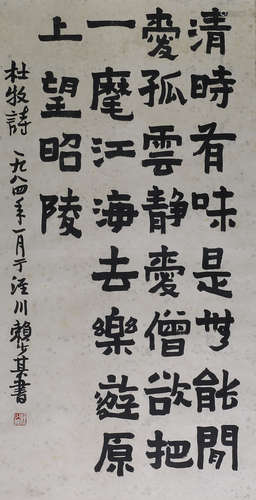 清時有味是無能閒
愛孤雲靜愛僧欲把
一麾江海去樂遊原
上望昭陵
杜牧詩 一九八四年一月于涇川賴少其書